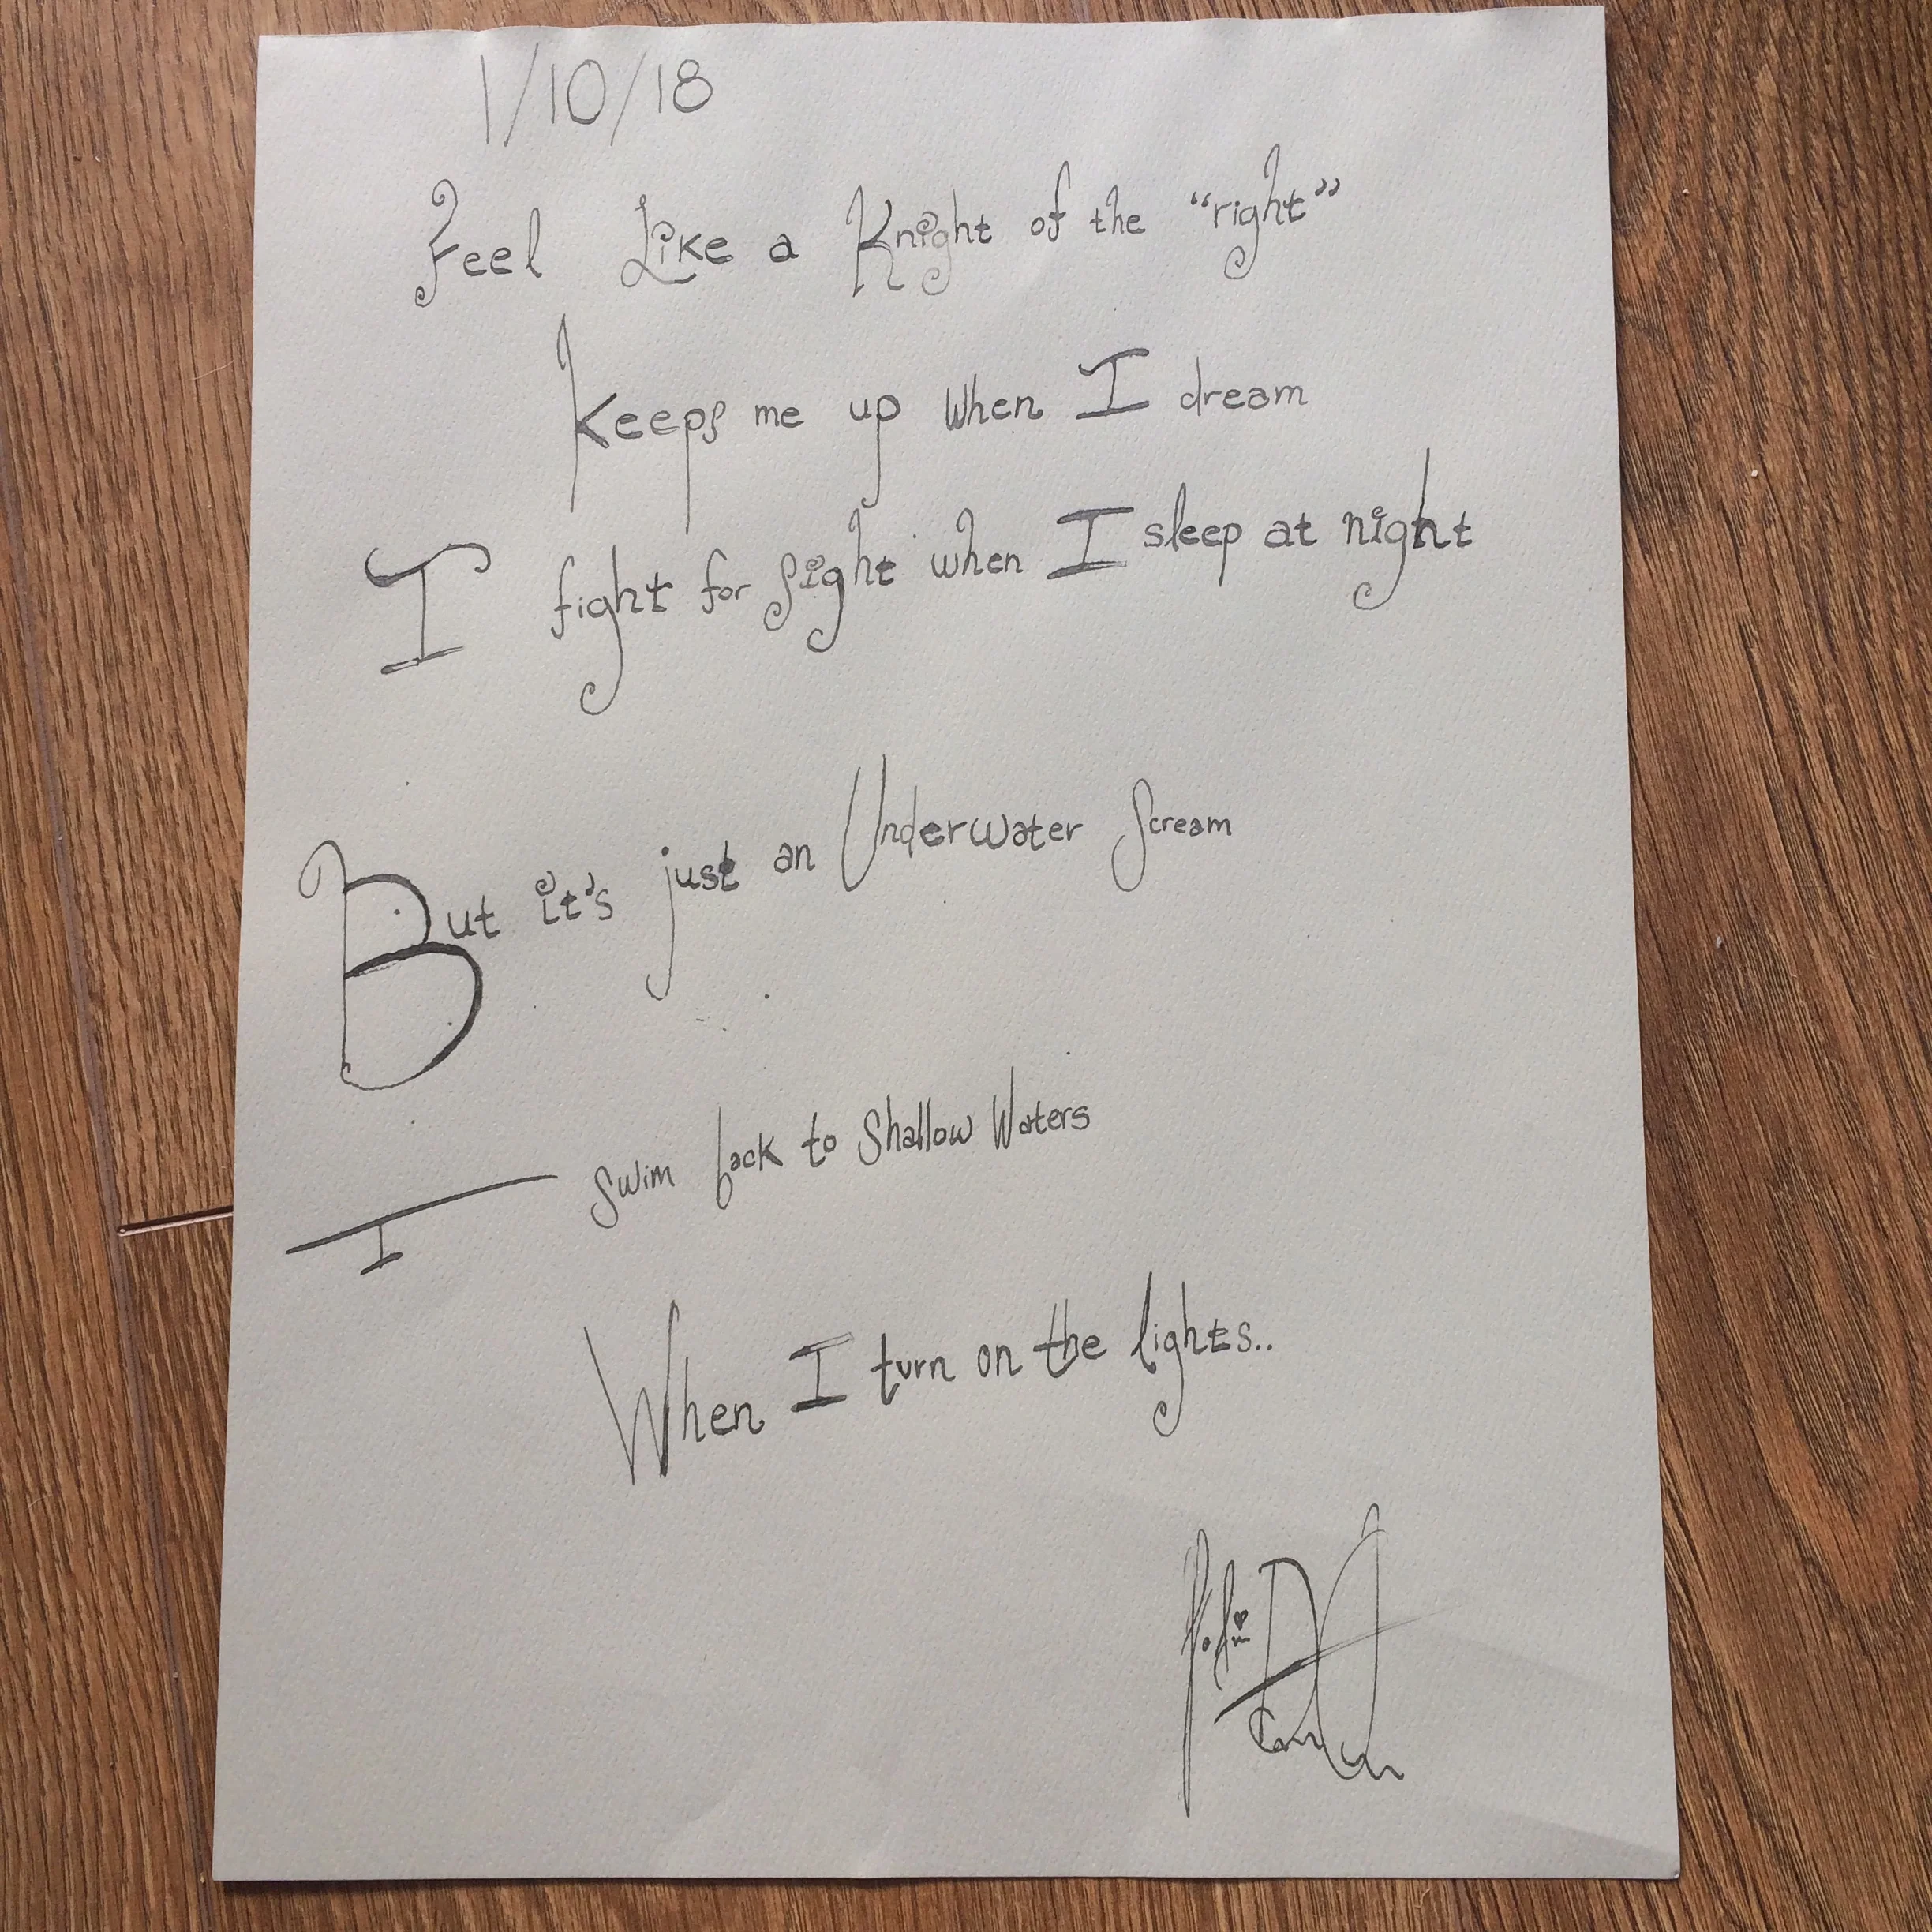 1/10/18
Feel Like a Knight of the “right”
Keeps me up when I dream
I fight for sight when I sleep at night
But it's just an Underwater Scream
I swim back to Shallow Waters
When I turn on the lights..